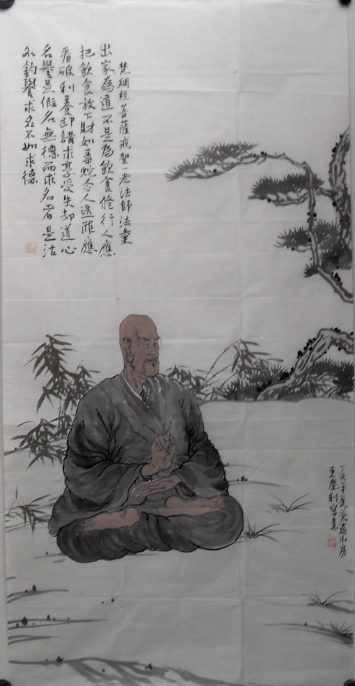 梵網經菩薩戒聖一老法師法彙
出家為道不是為飲食修行人應
把飲食放下財如毒蛇令人造罪應
看破利養即講求享受失却道心
名譽是假名無德而求名者是沽
名釣譽求名不如求德
丁亥年夏山房
王慶利寫意